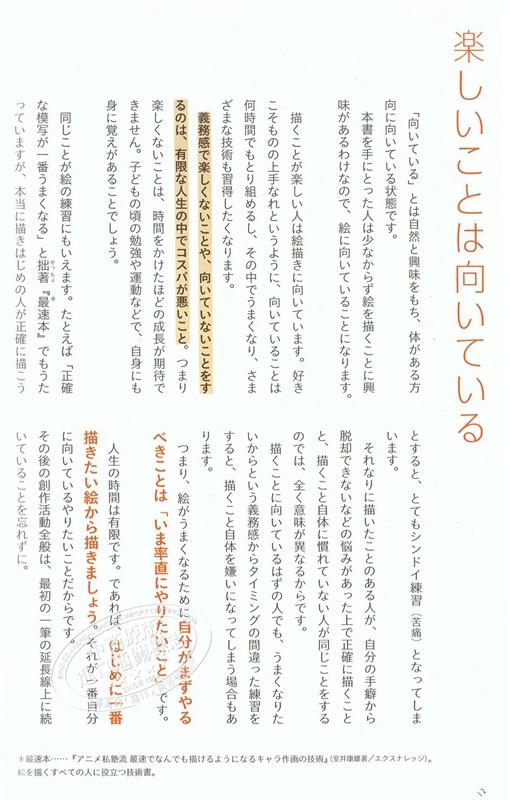 楽しいことは向いている
「向いている」とは自然と興味をもち、体がある方
向に向いている状態です。
本書を手にとった人は少なからず絵を描くことに興
味があるわけなので、絵に向いていることになります。
描くことが楽しい人は絵描きに向いています。好き
こそものの上手なれというように、向いていることは
何時間でもとり組めるし、その中でうまくなり、さま
ざまな技術も習得したくなります。
義務感で楽しくないことや、向いていないことをす
るのは、有限な人生の中でコスパが悪いこと。つまり
楽しくないことは、時間をかけたほどの成長が期待で
きません。子どもの頃の勉強や運動などで、自身にも
身に覚えがあることでしょう。
同じことが絵の練習にもいえます。たとえば「正確
な模写が一番うまくなる」と拙著『最速本』でもうた
っていますが、本当に描きはじめの人が正確に描こう
とすると、とてもシンドイ練習（苦痛）となってしま
います。
それなりに描いたことのある人が、自分の手癖から
脱却できないなどの悩みがあった上で正確に描くこと
と、描くこと自体に慣れていない人が同じことをする
のでは、全く意味が異なるからです。
描くことに向いているはずの人でも、うまくなりた
いからという義務感からタイミングの間違った練習を
すると、描くこと自体を嫌いになってしまう場合もあ
ります。
つまり、絵がうまくなるために自分がまずやる
べきことは「いま率直にやりたいこと」です。
人生の時間は有限です。であれば、はじめに一番
描きたい絵から描きましょう。それが一番自分
に向いているやりたいことだからです。
その後の創作活動全般は、最初の一筆の延長線上に続
いていることを忘れずに。
＊最速本……『アニメ私塾流 最速でなんでも描けるようになるキャラ作画の技術』（室井康雄著／エクスナレッジ）。
絵を描くすべての人に役立つ技術書。
12